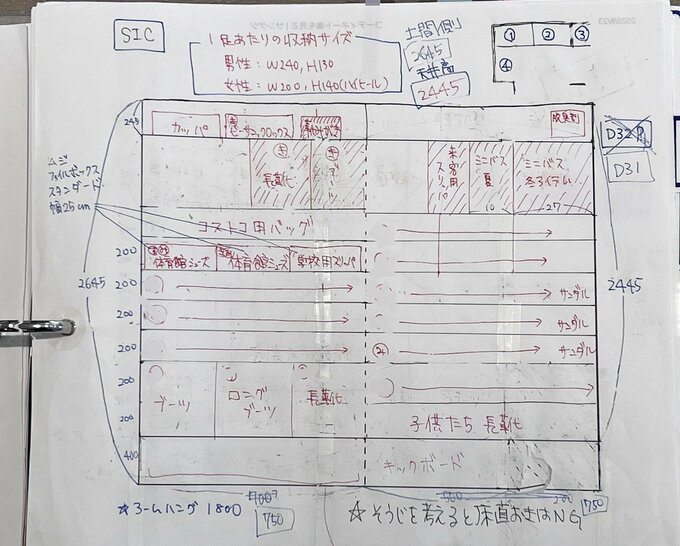 2020/8/23
SIC
1足あたりの収納サイズ
男性：W240, H130
女性：W200, H140(ハイヒール)
土間側
2645
天井高
2445
① ② ③
④
245
カッパ
ビーサン クロックス
D32
D31
ムジ
ファイルボックス
スタンダード
幅25cm
長靴
来客用
スリッパ
ミニバス
夏
10
ミニバス
冬
27
コストコ用バッグ
200
体育館シューズ
体育館シューズ
学校用スリッパ
2645
2445
200
サンダル
200
サンダル
200
サンダル
200
ブーツ
ロング
ブーツ
長靴
200
子供たち 長靴
400
キックボード
900
750
900
200
750
☆アームハング 1800
☆そうじを考えると床直おきはNG